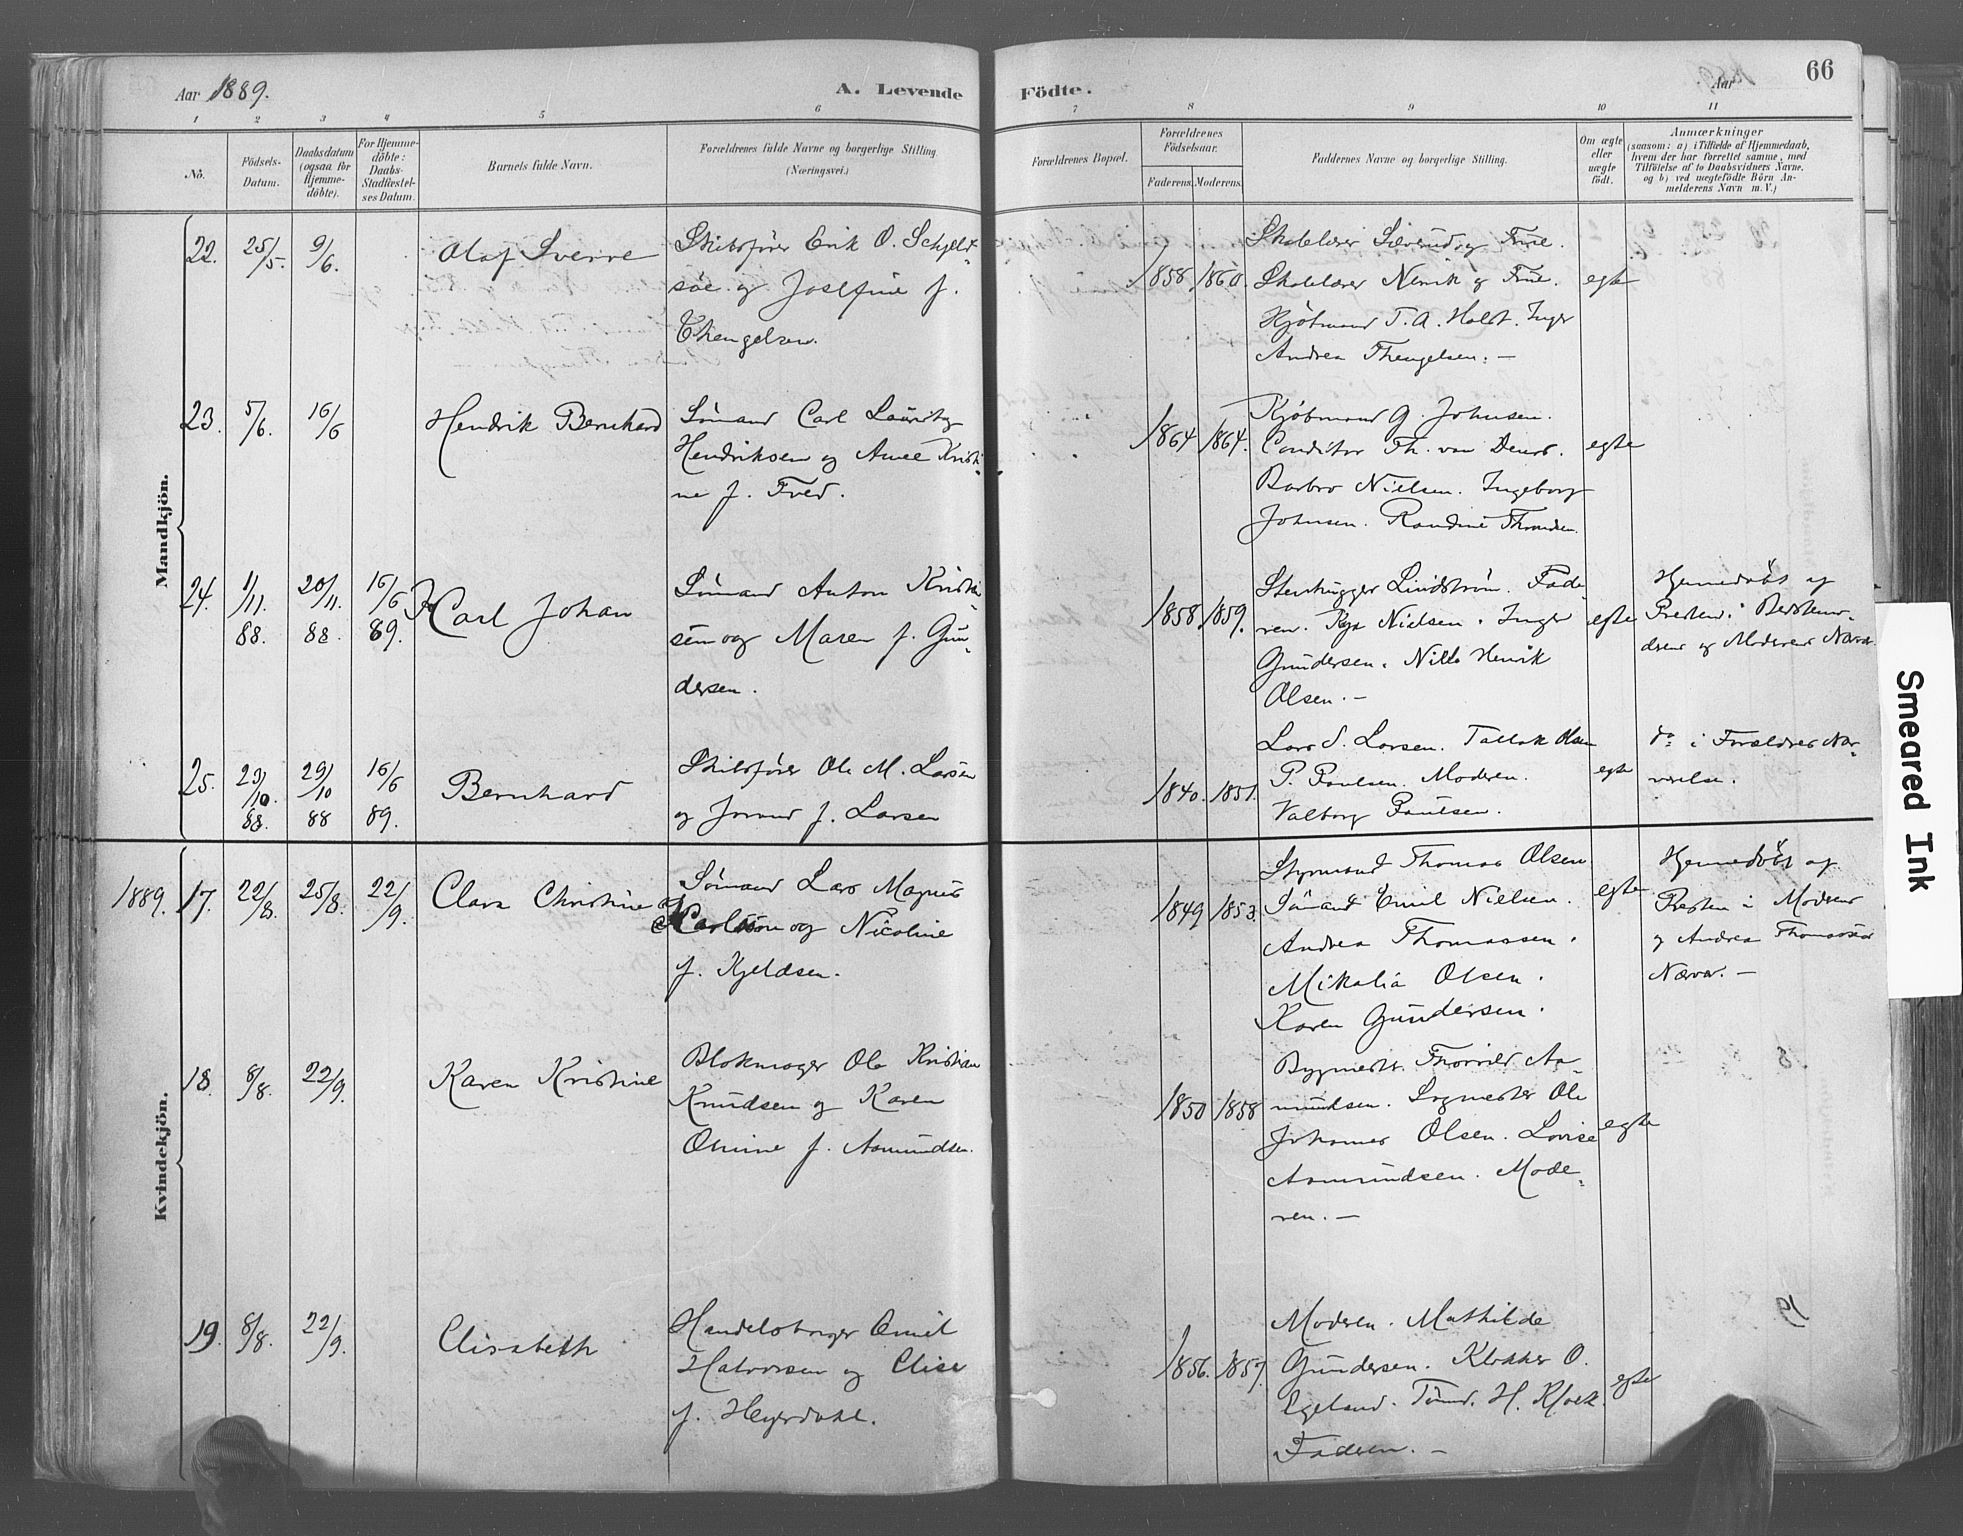 Aar 1889.
A. Levende Födte.
Aar
66
1 2 3 4 5 6 7 8 9 10 11
No.
Födsels-Datum.
Daabsdatum (ogsaa for Hjemme-döbte).
For Hjemme-döbte: Daabs-Stadfæstel-ses Datum.
Barnets fulde Navn.
Forældrenes fulde Navne og borgerlige Stilling (Næringsvei.)
Forældrenes Bopæl.
Forældrenes Födselsaar.
Faderens. Moderens.
Faddernes Navne og borgerlige Stilling.
Om ægte eller uægte födt.
Anmærkninger
(saasom: a) i Tilfælde af Hjemmedaab,
hvem der har forrettet samme, med
Tilföielse af to Daabsvidners Navne.
og b) ved uægtefödte Börn An-
melderens Navn m. V.)
Mandkjön.
22. 25/5. 9/6.
Olaf Sverre
Skibsfører Erik O. Schjelt-
søe og Josefine f.
Thengelsen.
1858. 1860.
Skolelærer og Frue.
Skolelærer Henrik og Frue.
Kjøbmand T. A. Holst. Inger
Andrea Thengelsen. —
egte
23. 5/6. 16/6
Hendrik Bernhard
Sømand Carl Lauritz
Hendriksen og Anne Kristi-
ne f. Tved.
1864 1864.
Kjøbmand G. Johnsen.
Conditor Th. van Deurs.
Barbro Nielsen. Ingeborg
Johnsen. Randine Thomdsen.
egte
24. 1/11. 88. 20/11. 88. 16/6 89.
Carl Johan
Sømand Anton Kristi-
sen og Maren f. Gun-
dersen.
1858. 1859.
Stenhugger Lindstrøm. Fade-
ren. Nielsen. Inger
Gundersen. Nills Henrik
Olsen. —
egte
Hjemmedøbt af
Presten i Bedstemo-
deren og Moderens Nærv.
25. 23/10. 88. 29/10 88 16/6 89.
Bernhard
Skibsfører Ole M. Larsen
og Jorand f. Larsen
1840. 1851.
Lars S. Larsen. Tallak Olsen
P. Paulsen. Moderen.
Valborg Paulsen.
egte
do i Forældres Nær-
værelse.
Kvindekjön.
1889. 17. 22/8. 25/8. 22/9.
Clara Christine
Sømand Lars Magnus
Karlson og Nicoline
f. Kjeldsen.
1849 1853.
Styrmand Thomas Olsen
Sømand Emil Nielsen.
Andrea Thomassen.
Mikalia Olsen.
Karen Gundersen.
egte
Hjemmedøbt af
Presten i Moderens
og Andrea Thomassens
Nærv. —
18. 8/8. 22/9.
Karen Kristine
Blokmager Ole Kristian
Knudsen og Karen
Osmine f. Aamundsen.
1850 1858
Bygmestr. Thorvild Aa-
mundsen. Sogmester Ole
Johannes Olsen. Lovise
Aamundsen. Mode-
ren. —
egte
19. 8/8. 22/9.
Elisabeth
Handelsborger Emil
Halvorsen og Elise
f. Heyerdahl.
1856. 1857.
Moderen. Mathilde
Gundersen. Klokker O.
Egeland. Tømd. H. Kloek.
Faderen. —
egte
Smeared Ink